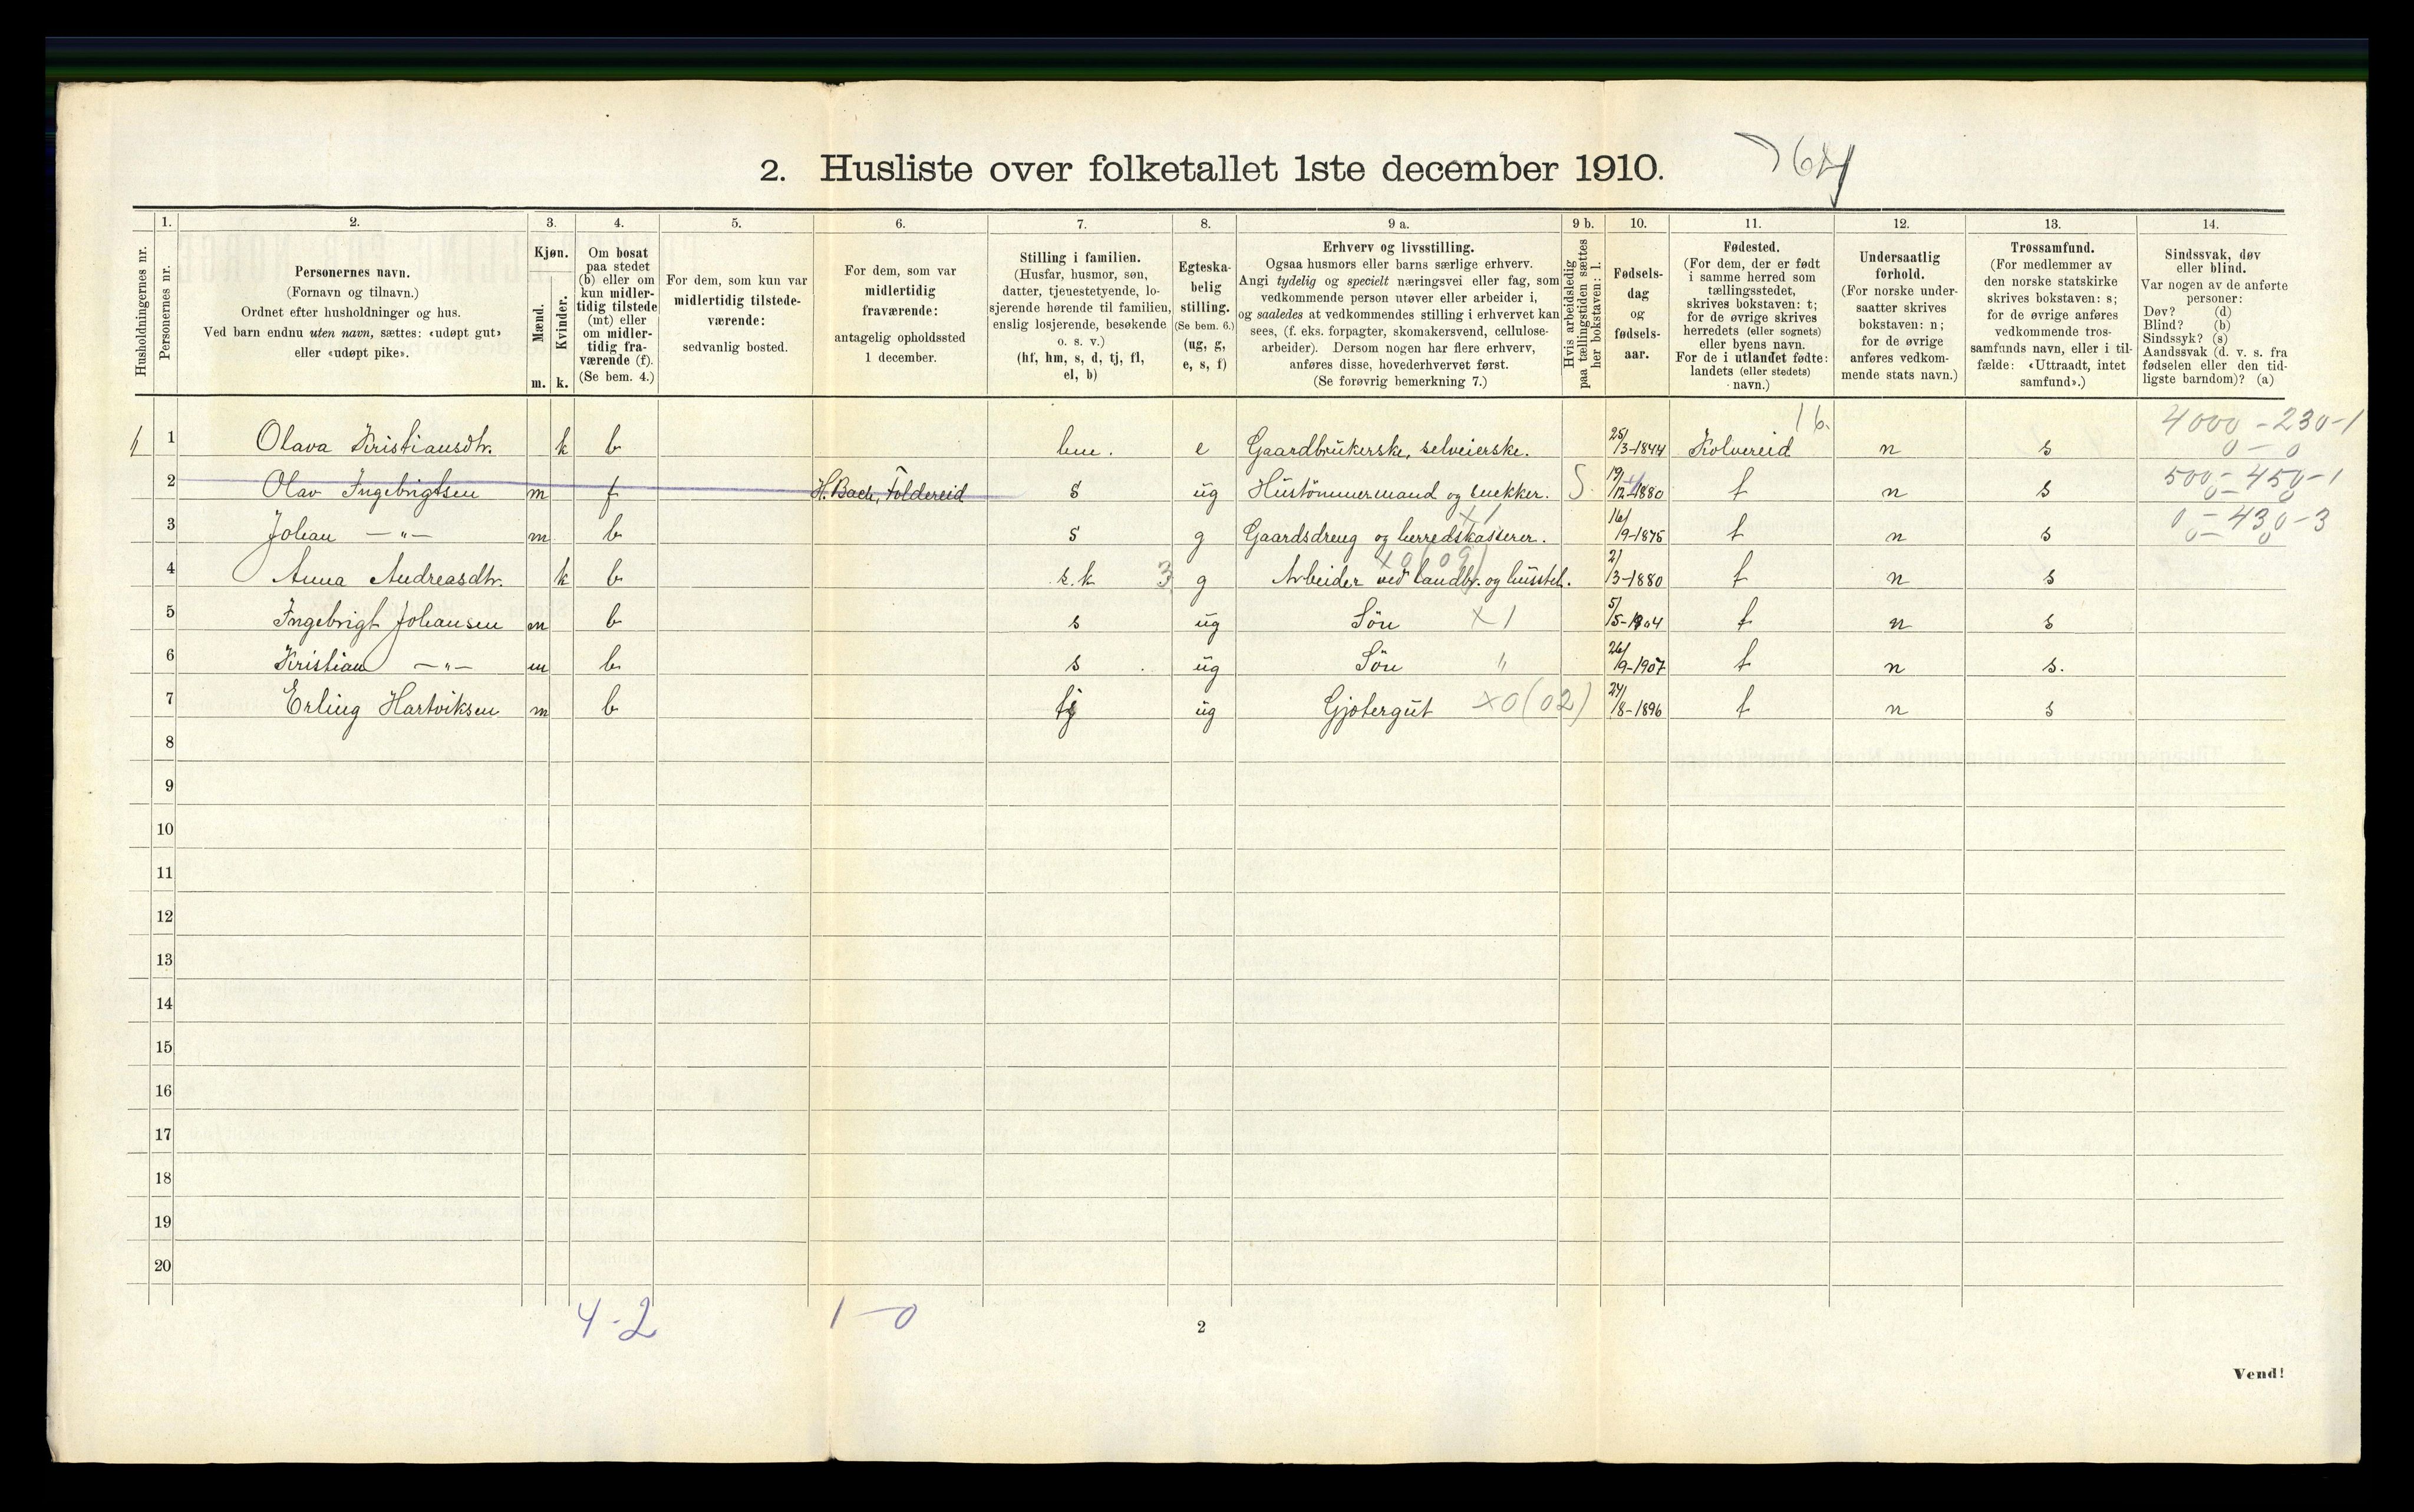 2. Husliste over folketallet 1ste december 1910.
1. 2. 3. 4. 5. 6. 7. 8. 9 a. 9 b. 10. 11. 12. 13. 14.
Husholdningernes nr.
Personernes nr.
Personernes navn.
(Fornavn og tilnavn.)
Ordnet efter husholdninger og hus.
Ved barn endnu uten navn, sættes: «udøpt gut»
eller «udøpt pike».
Kjøn.
Mænd.
Kvinder.
m. k.
Om bosat
paa stedet
(b) eller om
kun midler-
tidig tilstede
(mt) eller
om midler-
tidig fra-
værende (f).
(Se bem. 4.)
For dem, som kun var
midlertidig tilstede-
værende:
sedvanlig bosted.
For dem, som var
midlertidig
fraværende:
antagelig opholdssted
1 december.
Stilling i familien.
(Husfar, husmor, søn,
datter, tjenestetyende, lo-
sjerende hørende til familien,
enslig losjerende, besøkende
o. s. v.)
(hf, hm, s, d, tj, fl,
el, b)
Egteska-
belig
stilling.
(Se bem. 6.)
(ug, g,
e, s, f)
Erhverv og livsstilling.
Ogsaa husmors eller barns særlige erhverv.
Angi tydelig og specielt næringsvei eller fag, som
vedkommende person utøver eller arbeider i,
og saaledes at vedkommendes stilling i erhvervet kan
sees, (f. eks. forpagter, skomakersvend, cellulose-
arbeider). Dersom nogen har flere erhverv,
anføres disse, hovederhvervet først.
(Se forøvrig bemerkning 7.)
Hvis arbeidsledig
paa tællingstiden sættes
her bokstaven: l.
Fødsels-
dag
og
fødsels-
aar.
Fødested.
(For dem, der er født
i samme herred som
tællingsstedet,
skrives bokstaven: t;
for de øvrige skrives
herredets (eller sognets)
eller byens navn.
For de i utlandet fødte:
landets (eller stedets)
navn.)
Undersaatlig
forhold.
(For norske under-
saatter skrives
bokstaven: n;
for de øvrige
anføres vedkom-
mende stats navn.)
Trossamfund.
(For medlemmer av
den norske statskirke
skrives bokstaven: s;
for de øvrige anføres
vedkommende tros-
samfunds navn, eller i til-
fælde: «Uttraadt, intet
samfund».)
Sindssvak, døv
eller blind.
Var nogen av de anførte
personer:
Døv? (d)
Blind? (b)
Sindssyk? (s)
Aandssvak (d. v. s. fra
fødselen eller den tid-
ligste barndom)? (a)
16.
4000 - 230 - 1
1 1 Olava Kristiansdtr. k b hm. e Gaardbrukerske, selveierske. 25/3-1844 Kolvereid n s 0 - 0
2 Olav Ingebrigtsen m f H. Bach, Foldereid s ug Hustømmermand og snekker. S. 19/12-1880 t n s 500 - 450 - 1
0 - 0
3 Johan —„— m b s g Gaardsdreng og herredskasserer. x1 16/9-1875 t n s 0 - 430 - 3
0 - 0
4 Anna Andreasdtr. k b s.k 3 g Arbeider ved landbr. og husstel. x0(09) 2/3-1880 t n s
5 Ingebrigt Johansen m b s ug Søn x1 5/5-1904 t n s
6 Kristian —„— m b s ug Søn „ 26/9-1907 t n s.
7 Erling Hartviksen m b tj ug Gjætergut x0(02) 24/8-1896 t n s
8
9
10
11
12
13
14
15
16
17
18
19
20
4-2 1-0
2
Vend!